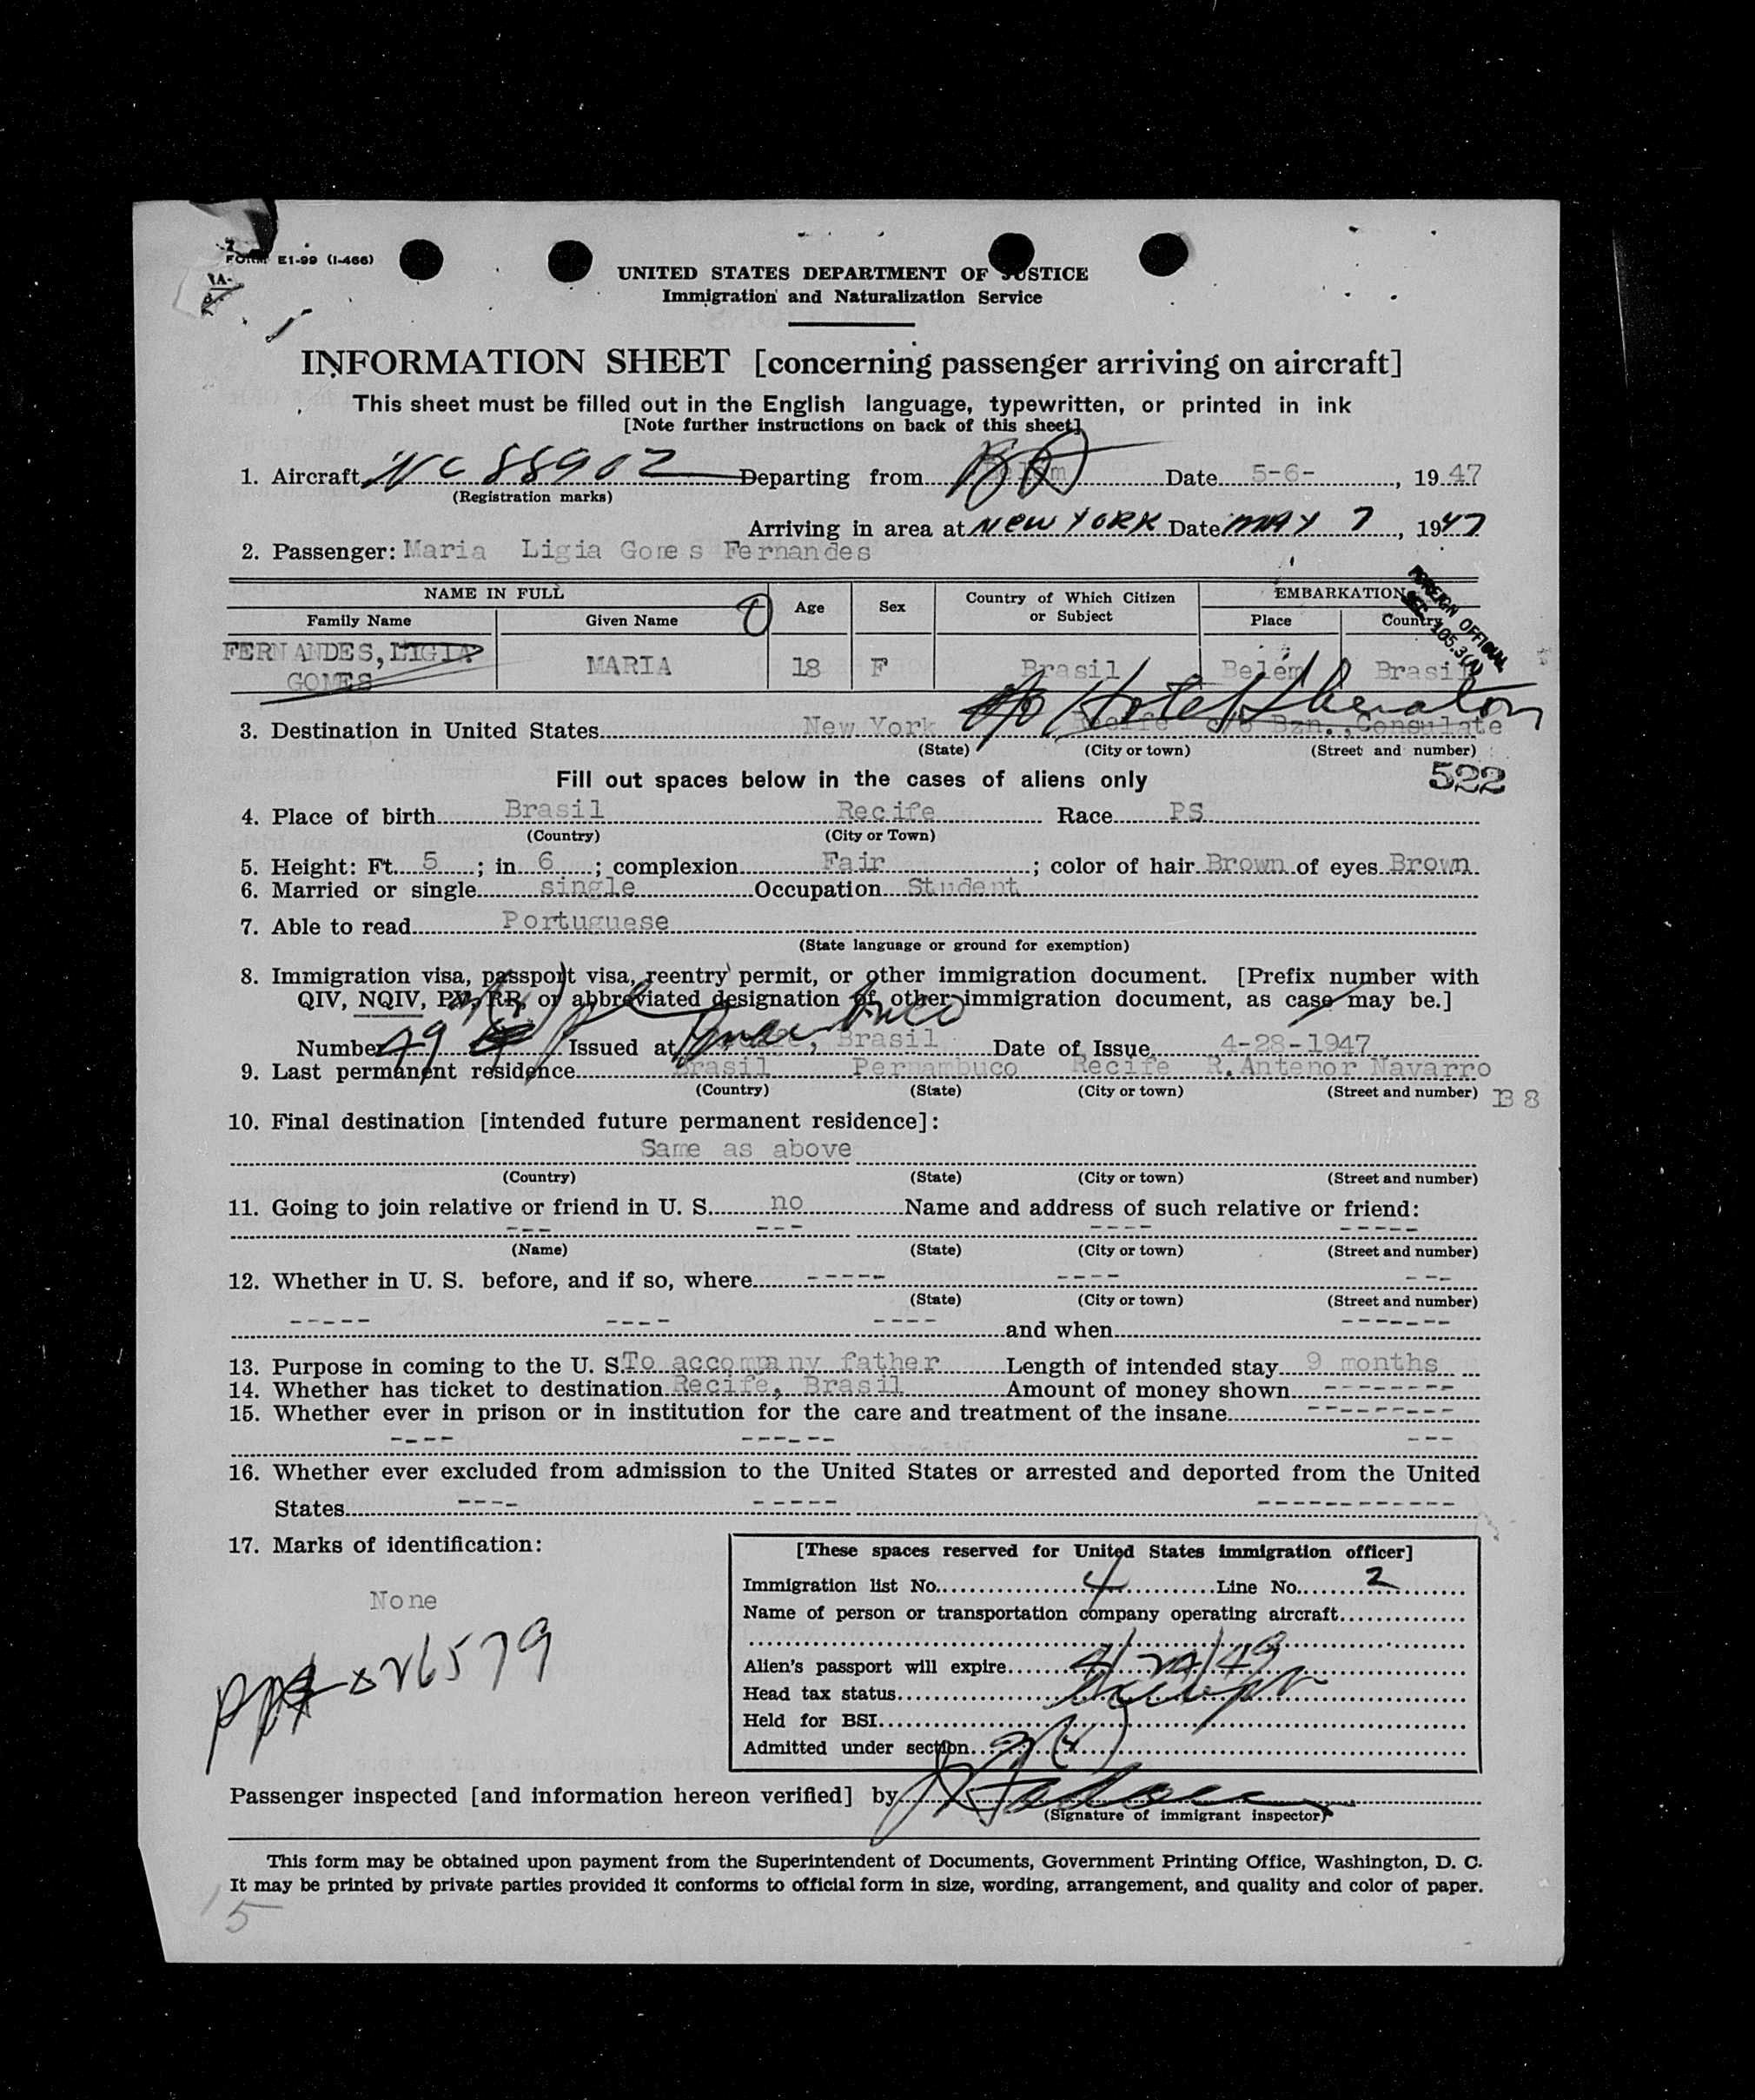 FORM E1-99 (I-466)
UNITED STATES DEPARTMENT OF JUSTICE
Immigration and Naturalization Service
INFORMATION SHEET [concerning passenger arriving on aircraft]
This sheet must be filled out in the English language, typewritten, or printed in ink
[Note further instructions on back of this sheet]
1. Aircraft NC 88902 Departing from Date 5-6-, 1947
(Registration marks)
Arriving in area at NEW YORK Date MAY 7, 1947
2. Passenger: Maria Ligia Gomes Fernandes
NAME IN FULL Age Sex Country of Which Citizen or Subject EMBARKATION
Family Name Given Name Place Country
FOREIGN OFFICIAL
SEC 105.3(A)
FERNANDES, LIGIA MARIA 18 F Brasil Belém Brasil
GOMES
c/o Hotel Sheraton
3. Destination in United States New York Recife c/o Bzn. Consulate
(State) (City or town) (Street and number)
Fill out spaces below in the cases of aliens only 522
4. Place of birth Brasil Recife Race PS
(Country) (City or Town)
5. Height: Ft. 5; in 6; complexion Fair; color of hair Brown of eyes Brown
6. Married or single single Occupation Student
7. Able to read Portuguese
(State language or ground for exemption)
8. Immigration visa, passport visa, reentry permit, or other immigration document. [Prefix number with
QIV, NQIV, PV, RP, or abbreviated designation of other immigration document, as case may be.]
Number 49 Issued at Pernambuco, Brasil Date of Issue 4-28-1947
9. Last permanent residence Brasil Pernambuco Recife R.Antenor Navarro
(Country) (State) (City or town) (Street and number) B 8
10. Final destination [intended future permanent residence]:
Same as above
(Country) (State) (City or town) (Street and number)
11. Going to join relative or friend in U. S. no Name and address of such relative or friend:
--- --- ---- -----
(Name) (State) (City or town) (Street and number)
12. Whether in U. S. before, and if so, where ----- ---- ---
(State) (City or town) (Street and number)
----- ---- ---- and when -------
13. Purpose in coming to the U. S. To accompany father Length of intended stay 9 months
14. Whether has ticket to destination Recife, Brasil Amount of money shown --------
15. Whether ever in prison or in institution for the care and treatment of the insane ---------
---- ------ ---
16. Whether ever excluded from admission to the United States or arrested and deported from the United
States ---- ----- ------------
17. Marks of identification:
None
ppt 026579
[These spaces reserved for United States immigration officer]
Immigration list No. 4 Line No. 2
Name of person or transportation company operating aircraft
Alien's passport will expire 4/24/49
Head tax status Exempt
Held for BSI
Admitted under section 3(1)
Passenger inspected [and information hereon verified] by
(Signature of immigrant inspector)
This form may be obtained upon payment from the Superintendent of Documents, Government Printing Office, Washington, D. C.
It may be printed by private parties provided it conforms to official form in size, wording, arrangement, and quality and color of paper.
5